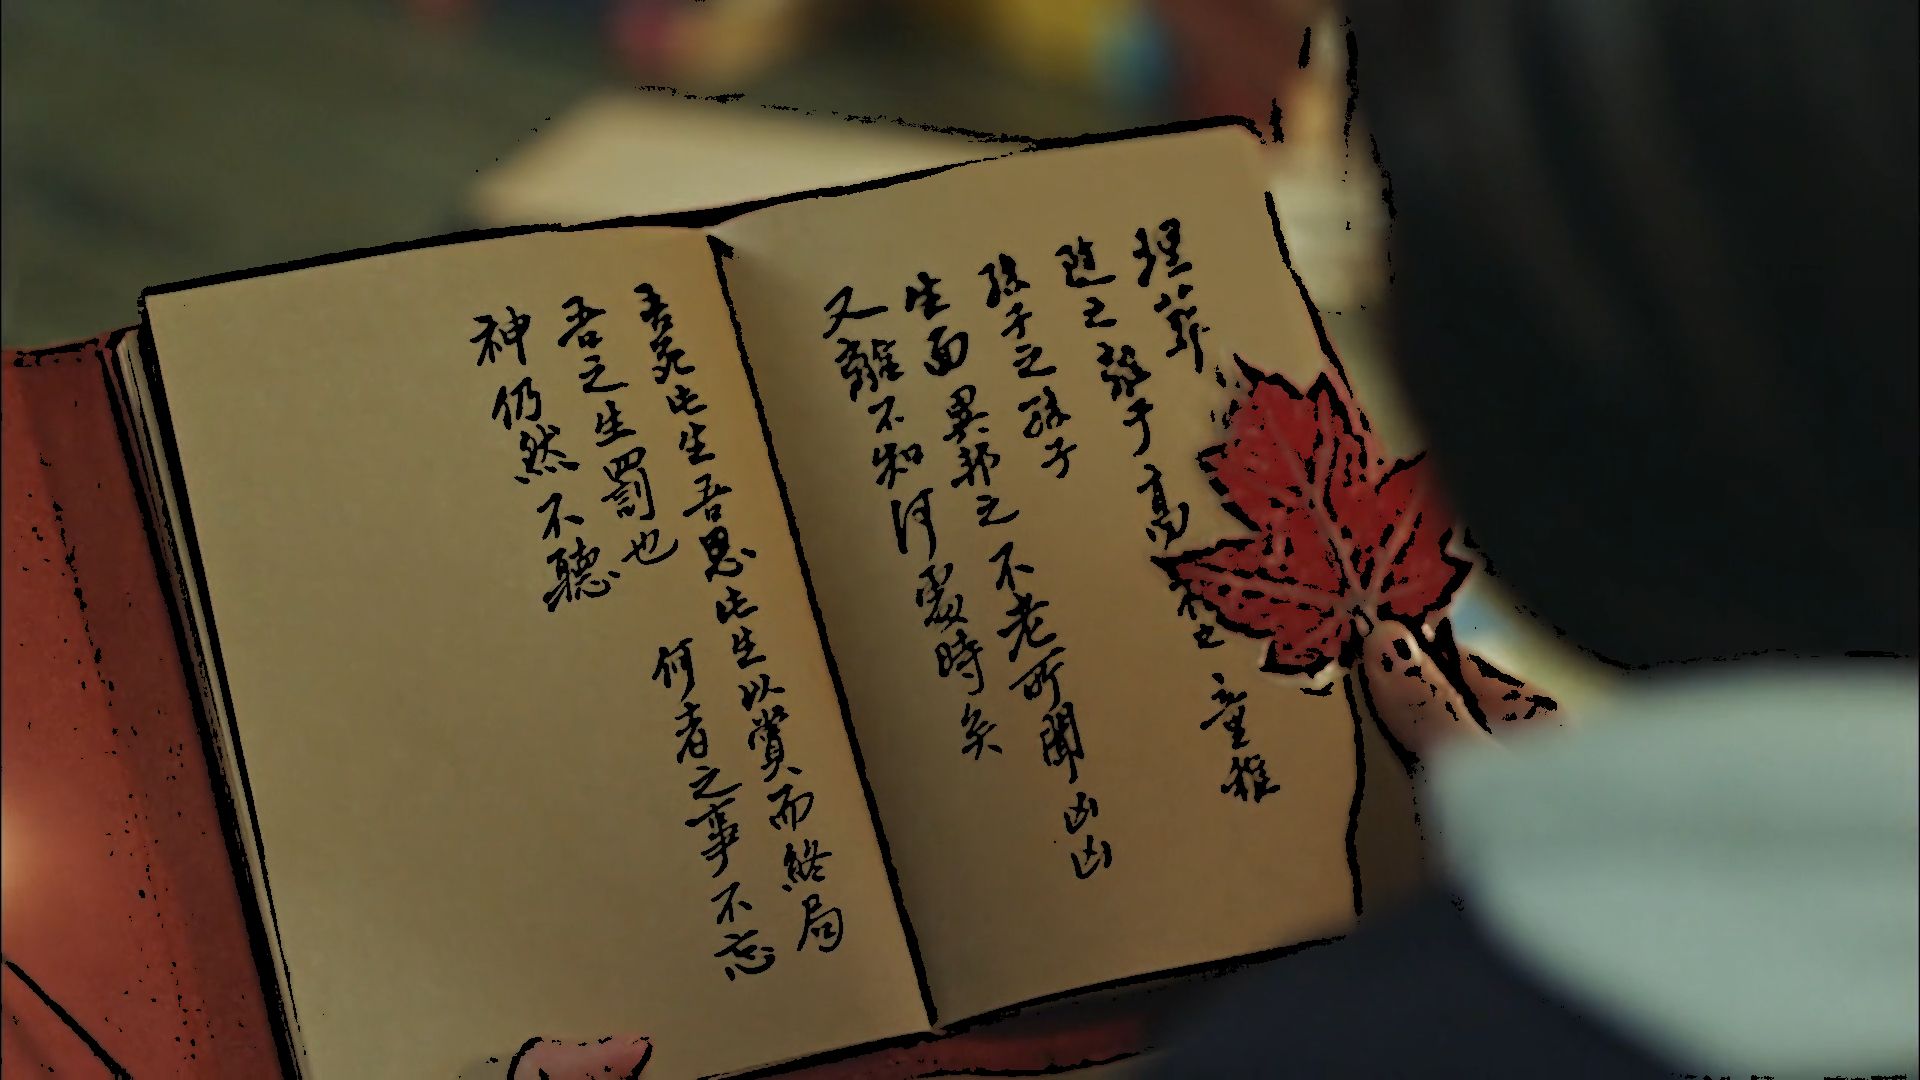 埋葬
随之 于高 童稚
孫子之孫子
生面異邦之不老所聞凶凶
又離不知何處時矣
吾死此生吾思此生以賞而終局
吾之生罰也 何者之事不忘
神仍然不聽